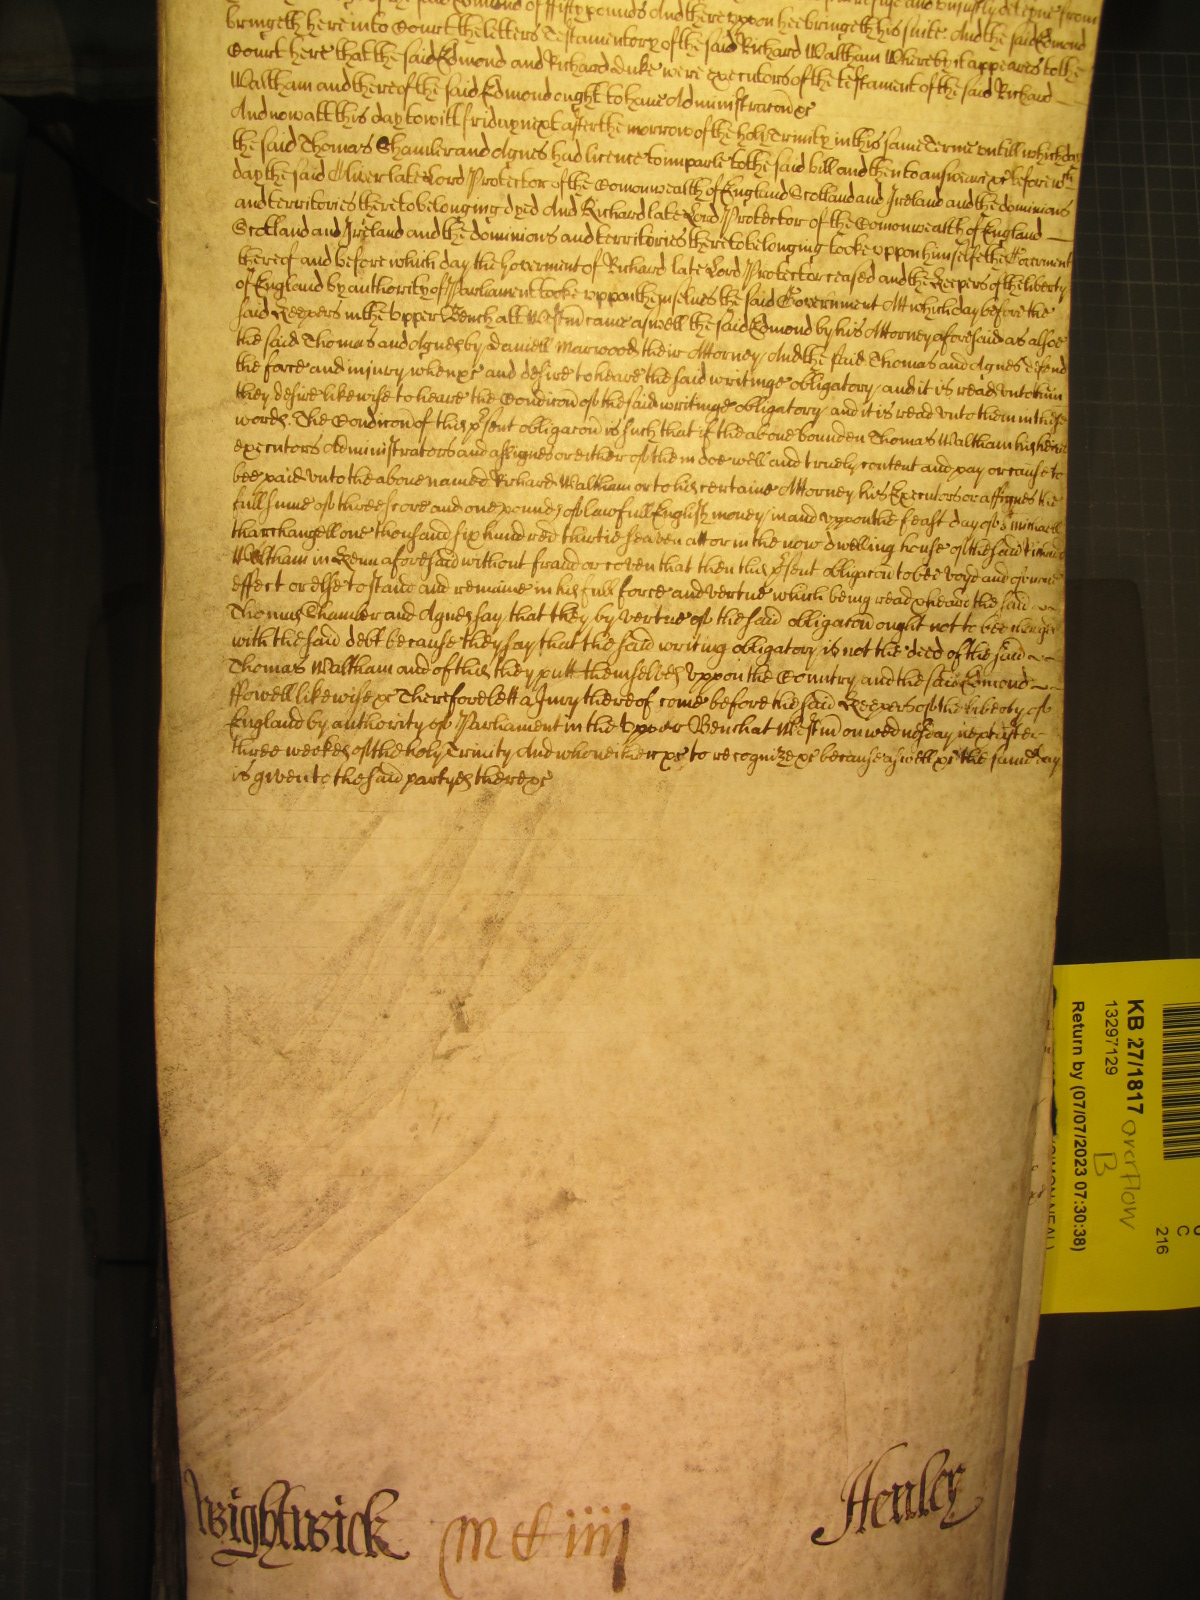 of the said Edmond of fiftypounds And thereuppon hee bringeth his suite And the said Edmond
bringeth here into Court the letters Testamentory of the said Richard Waltham Whereby it appeares to the
Court here that the said Edmond and Richard Duke were executors of the testament of the said Richard
Waltham and thereof the said Edmond ought to have Administracon &c
And now att this day to witt fryday next after the morrow of the holy Trinity in this same Terme untill which day
the said Thomas Chamber and Agnes had licence to imparle to the said bill and then to answeare &c before wch
day the said Oliver late Lord Protector of the Comonwealth of England Scotland and Ireland and the dominions
and territories thereto belonging dyed And Richard late Lord Protector of the Comonwealth of England
Scotland and Ireland and the dominions and territories thereto belonging tooke uppon himselfe the Goverment
thereof and before which day the Goverment of Richard late Lord Protector ceased and the Keepers of the liberty
of England by authority of Parliament tooke uppon themselves the said Government Att which day before the
said Keepers in the Upper Bench att Westm came aswell the said Edmond by his Attorney aforesaid as alsoe
the said Thomas and Agnes by Daniell Marwood their Attorney And the said Thomas and Agnes defend
the force and injury when &c and desire to heare the said writinge obligatory and it is read unto them
they desire likewise to heare the Condicon of the said writinge obligatory and it is read unto them in these
words. The Condicon of this psent obligacon is such that if the above bounden Thomas Waltham his heires
executors Administrators and assignes or either of them doe well and truely content and pay or cause to
bee paid unto the above named Richard Waltham or to his certaine Attorney his Executors or assignes the
full sume of three score and one pounds of lawfull English money in and uppon the feast day of S Michaell
tharchangell one thousand six hundred thirtie seaven att or in the now dwelling house of the said Richard
Waltham in Kenn aforesaid without fraud or coven that then this psent obligacon to bee voyd and of none
effect or else to stand and remaine in his full force and vertue which being read & heard the said
Thomas Chamber and Agnes say that they by vertue of the said obligacon ought not to bee charged
with the said debt because they say that the said writing obligatory is not the deed of the said
Thomas Waltham and of this they putt themselves uppon the Country and the said Edmond
ffowell likewise &c Therefore lett a Jury thereof come before the said Keepers of the liberty of
England by authority of Parliament in the Upper Bench at Westm on wednesday next after
three weekes of the holy Trinity And who neither &c to recognize &c because aswell &c the same day
is given to the said partyes there &c
Wightwick
M C iiij
Henley
KB 27/1817
13297129
Return by (07/07/2023 07:30:38)
overflow
B
C
216